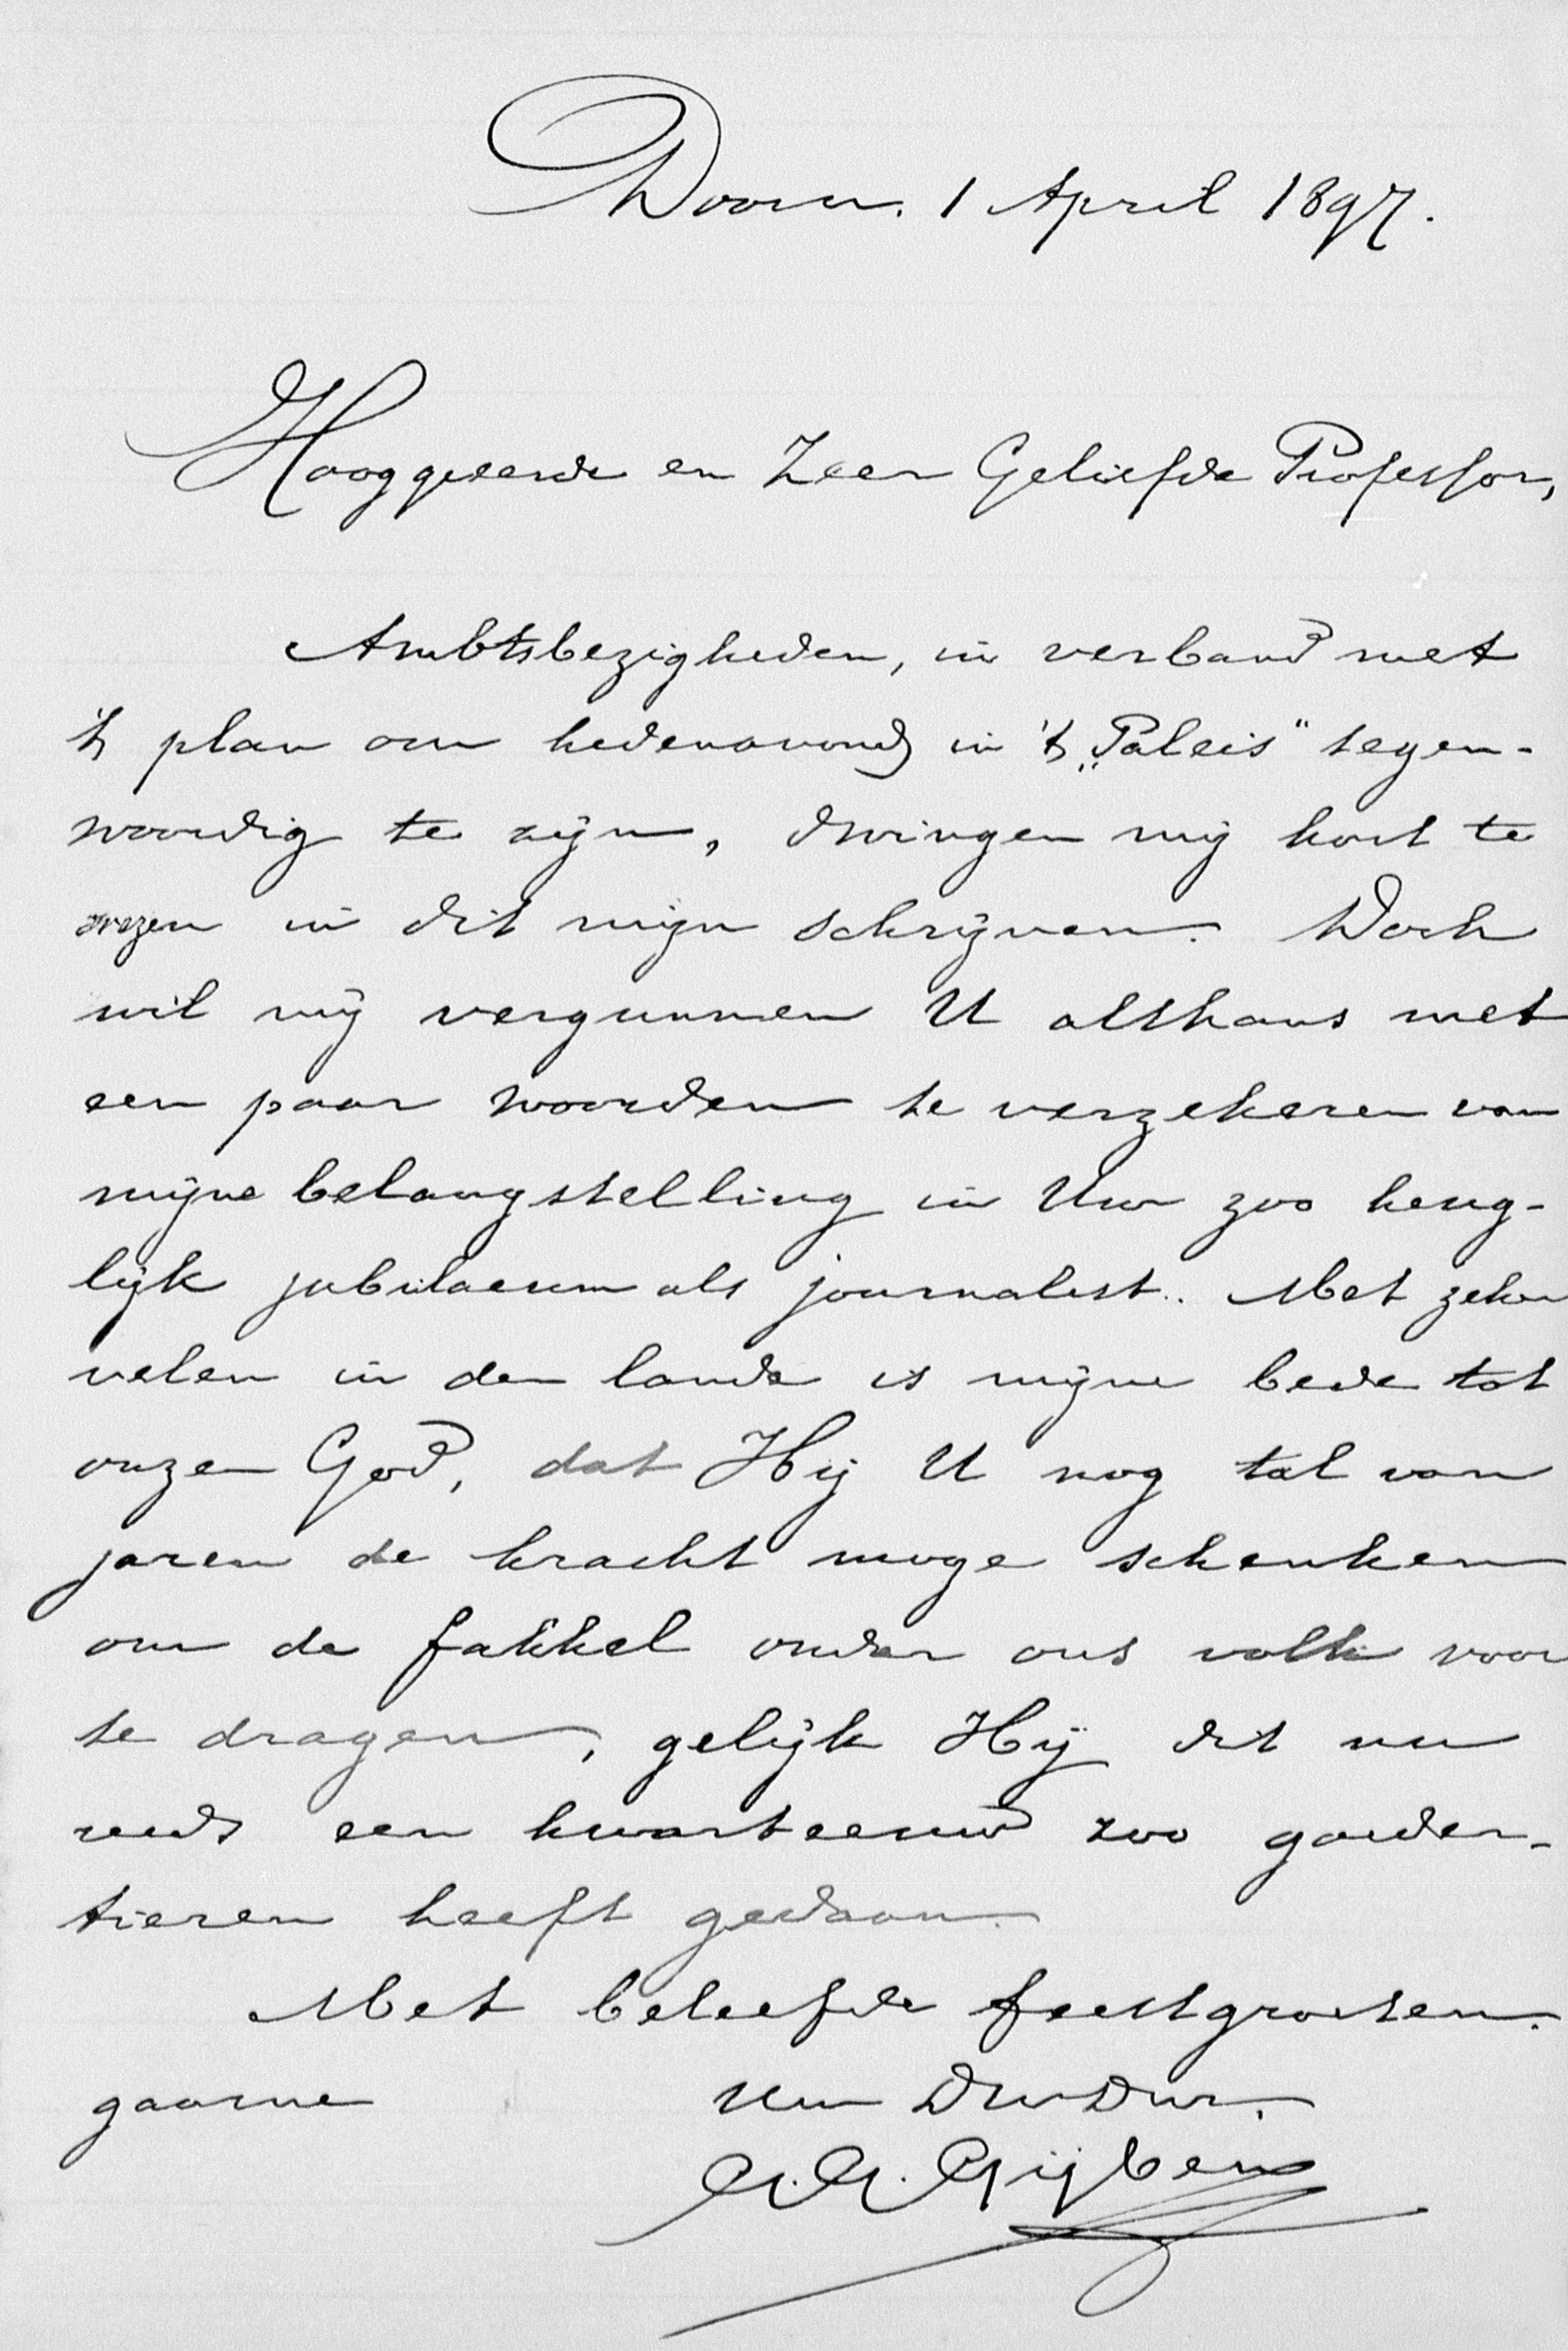 Doorn. 1 April 1897.
Hooggeëerde en Zeer Geliefde Professor,
Ambtsbezigheden, in verband met
't plan om hedenavond in 't „Paleis" tegen-
woordig te zijn, dwingen mij kort te
wezen in dit mijn schrijven. Doch
wil mij vergunnen U althans met
een paar woorden te verzekeren van
mijne belangstelling in Uw zoo heug-
lijk jubilaeum als journalist. Met zeker
velen in den lande is mijne bede tot
onzen God, dat Hij U nog tal van
jaren de kracht moge schenken
om de fakkel onder ons volk voor
te dragen, gelijk Hij dit nu
reeds een kwarteeuw zoo goeder-
tieren heeft gedaan.
Met beleefde feestgroeten.
gaarne Uw Dw Dnr.